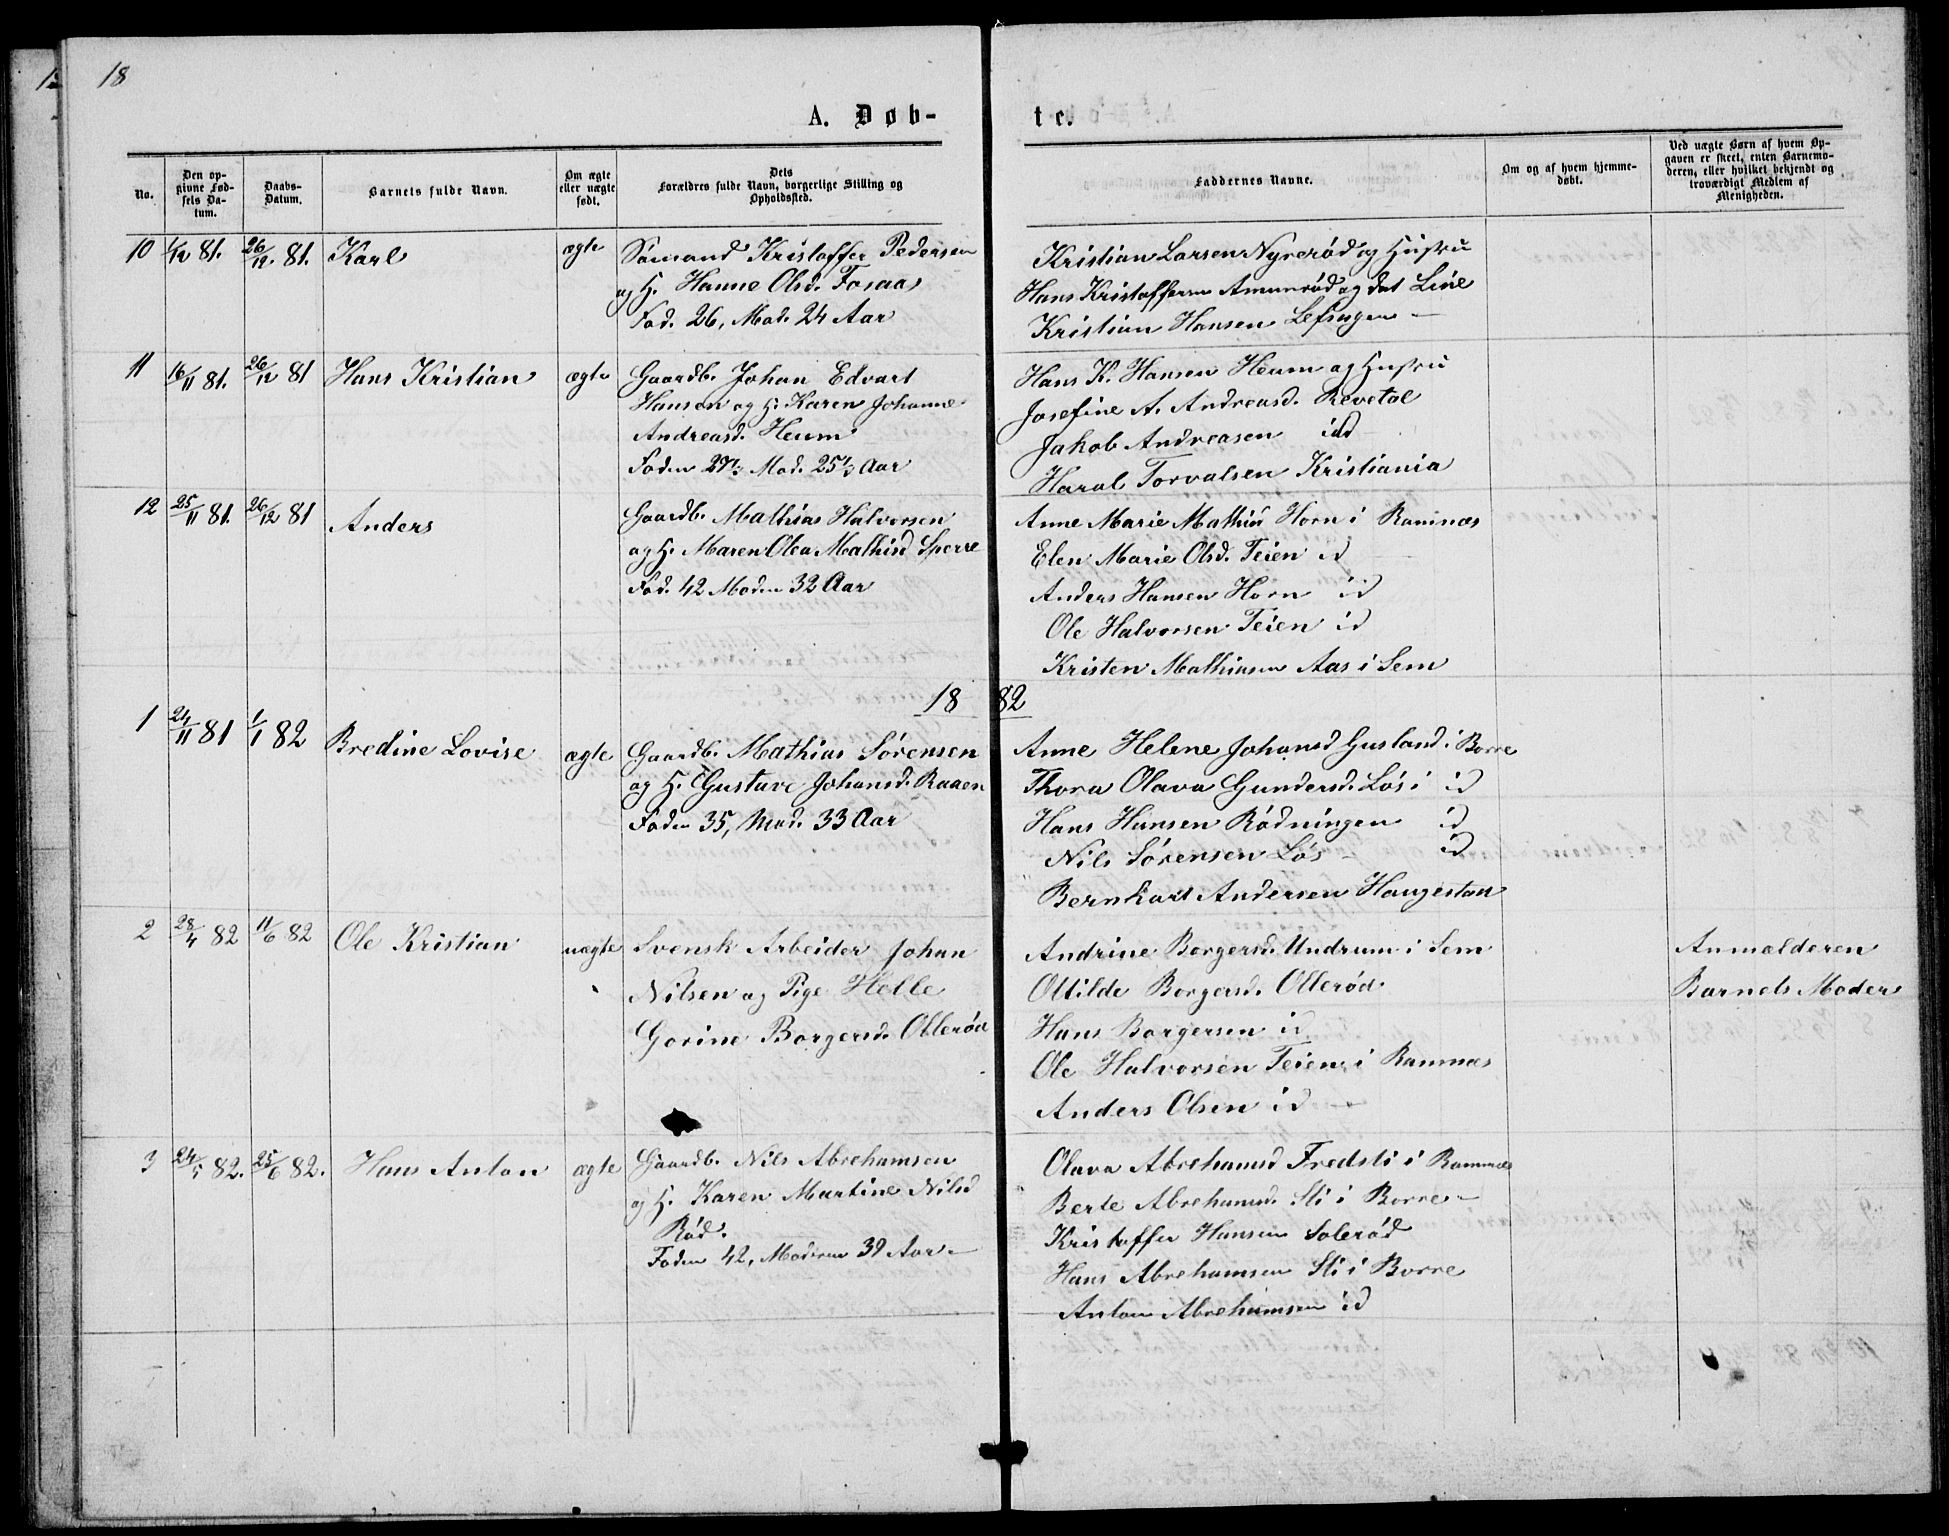 18
A. Døb-
te.
No.
Den op-
givne Fød-
sels Da-
tum.
Daabs-
Datum.
Barnets fulde Navn.
Om ægte
eller uægte
født.
Dets
Forældres fulde Navn, borgerlige Stilling og
Opholdssted.
Faddernes Navne.
Om og af hvem hjemme-
døbt.
Ved uægte Børn af hvem Op-
gaven er skeet, enten Barnemo-
deren, eller hvilket bekjendt og
troværdigt Medlem af
Menigheden.
10 1/12 81. 26/12. 81. Karl ægte
Sømand Kristoffer Pedersen
og H. Hanne Olsd. Fosaas
Fad. 26, Mod. 24 Aar
Kristian Larsen Nyrerød og Hustru
Hans Kristoffersen Amunrød og dat Line
Kristian Hansen
11 16/11 81. 26/12 81 Hans Kristian ægte
Gaardb. Johan Edvart
Hansen og H. Karen Johanne
Andreasd. Heum
Faden 29½ Mod. 25½ Aar
Hans K. Hansen Heum og Hustru
Josefine A. Andreasd. Revetal
Jakob Andreasen id
Haral Torvalsen Kristiania
12 25/11 81. 26/12 81 Anders
Gaardb. Mathias Halvorsen
og H. Maren Olea Mathisd Sperre
Fad. 42 Moden 32 Aar
Anne Marie Mathis Horn i Ramnæs
Elen Marie Olsd. Teien id
Anders Hansen Horn id
Ole Halvorsen Teien id
Kristen Mathiasen Aas i Sem
18 82
1 24/11 81 1/1 82 Bredine Lovise ægte
Gaardb. Mathias Sørensen
og H. Gustave Johansd. Raaen
Faden 35, Mod. 33 Aar
Anne Helene Johansd Gusland i Borre
Thora Olava Gundersd. Løs i id
Hans Hansen Rødningen id
Nils Sørensen Løs - id
Bernhart Andersen Haugestan
2 28/4 82 11/6 82 Ole Kristian uægte
Svensk Arbeider Johan
Nilsen og Pige Helle
Gorine Borgersd. Ollerød
Andrine Borgersd. Undrum i Sem
Otilde Borgersd. Ollerød
Hans Borgersen id
Ole Halvorsen Teien i Ramnæs
Anders Olsen id
Anmælderen
Barnets Moder
3 24/5 82. 25/6 82. Hans Anton ægte
Gaardb. Nils Abrehamsen
og H. Karen Martine Nilsd
Rød.
Faden 42, Moderen 39 Aar
Olava Abrehamsd Fredsti i Ramnæs
Berte Abrehamsd. Sti i Borre
Kristoffer Hansen Solerød
Hans Abrehamsen Sti i Borre
Anton Abrehamsen id